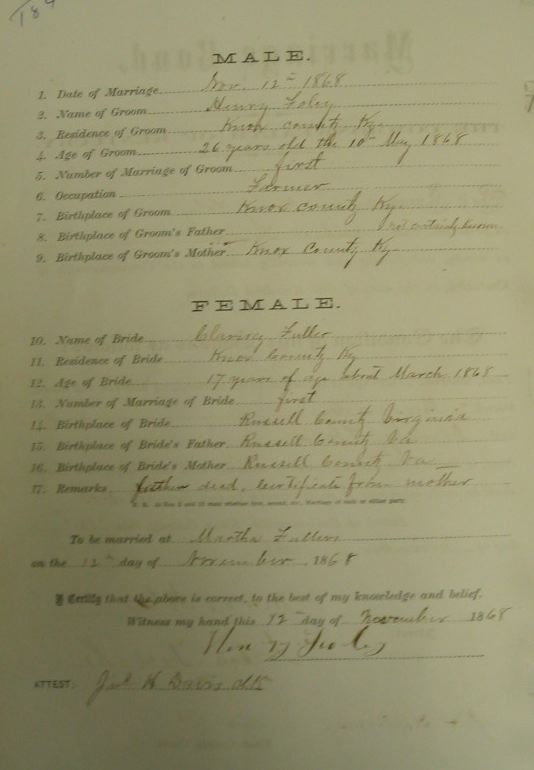 184
MALE.
1. Date of Marriage Nov. 12th 1868
2. Name of Groom Henry Foley
3. Residence of Groom Knox County Ky
4. Age of Groom 26 years old the 10th May 1868
5. Number of Marriage of Groom first
6. Occupation Farmer
7. Birthplace of Groom Knox County Ky
8. Birthplace of Groom's Father not certainly known
9. Birthplace of Groom's Mother Knox County Ky
FEMALE.
10. Name of Bride Fuller
11. Residence of Bride Knox County Ky
12. Age of Bride 17 years of age about March 1868
13. Number of Marriage of Bride first
14. Birthplace of Bride Russell County Virginia
15. Birthplace of Bride's Father Russell County Va
16. Birthplace of Bride's Mother Russell County Va
17. Remarks father dead, Certificate from mother
To be married at Martha Fullers
on the 12th day of November 1868
I Certify that the above is correct, to the best of my knowledge and belief.
Witness my hand this 12th day of November 1868
Henry Foley
ATTEST: Davis